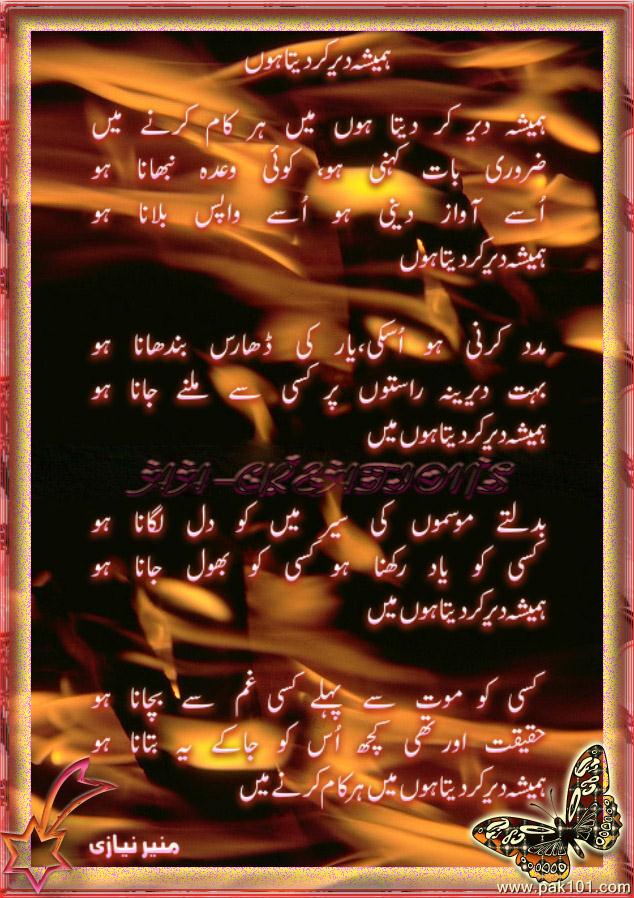 ہمیشہ دیر کر دیتا ہوں
ہمیشہ دیر کر دیتا ہوں میں ہر کام کرنے میں
ضروری بات کہنی ہو، کوئی وعدہ نبھانا ہو
اُسے آواز دینی ہو اُسے واپس بلانا ہو
ہمیشہ دیر کر دیتا ہوں
مدد کرنی ہو اُسکی، یار کی ڈھارس بندھانا ہو
بہت دیرینہ راستوں پر کسی سے ملنے جانا ہو
ہمیشہ دیر کر دیتا ہوں میں
بدلتے موسموں کی سیر میں کو دل لگانا ہو
کسی کو یاد رکھنا ہو کسی کو بھول جانا ہو
ہمیشہ دیر کر دیتا ہوں میں
کسی کو موت سے پہلے کسی غم سے بچانا ہو
حقیقت اور تھی کچھ اُس کو جاکے یہ بتانا ہو
ہمیشہ دیر کر دیتا ہوں میں ہر کام کرنے میں
منیر نیازی
www.pak101.com